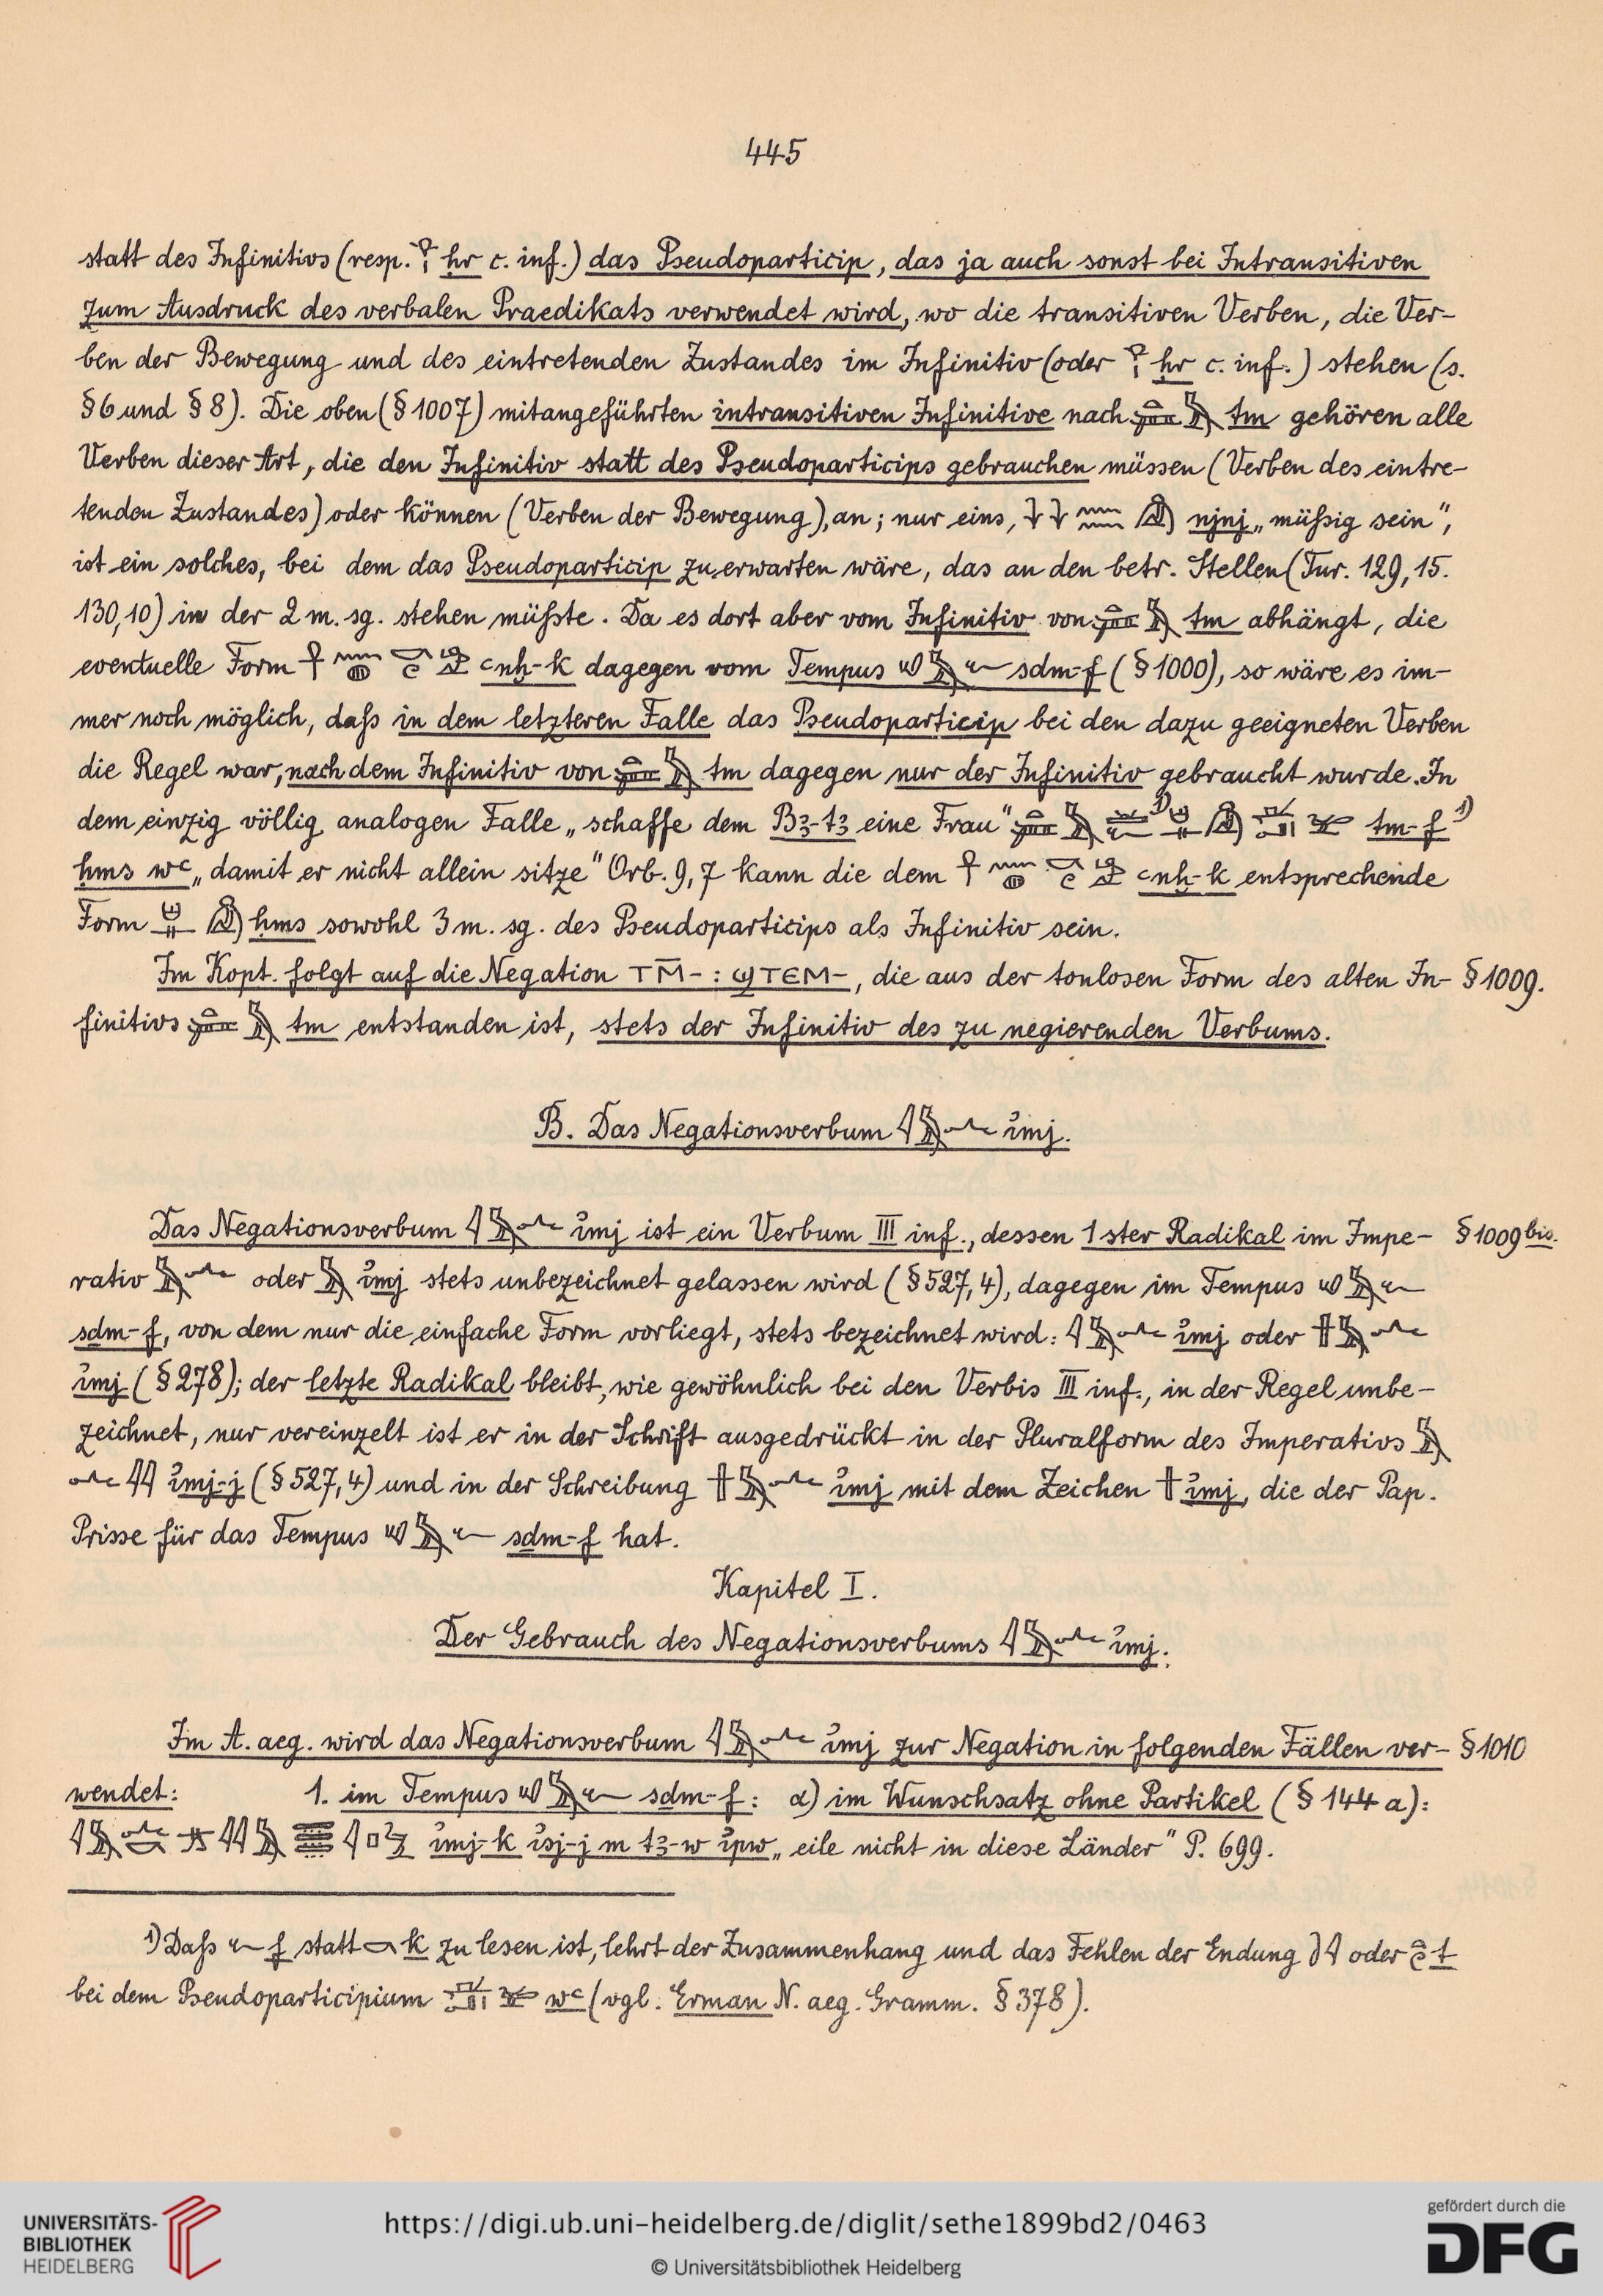 445
statt des Infinitivs (resp. 𓁷𓏤 ḥr c. inf.) das Pseudoparticip, das ja auch sonst bei Intransitiven
zum Ausdruck des verbalen Praedikats verwendet wird, wo die transitiven Verben, die Ver-
ben der Bewegung und des eintretenden Zustandes im Infinitiv (oder 𓁷𓏤 ḥr c. inf.) stehen (s.
§ 6 und § 8). Die oben (§ 1007) mitangeführten intransitiven Infinitive nach tm gehören alle
Verben dieser Art, die den Infinitiv statt des Pseudoparticips gebrauchen müssen (Verben des eintre-
tenden Zustandes) oder können (Verben der Bewegung), an; nur eins, njnj „müßig sein“,
ist ein solches, bei dem das Pseudoparticip zu erwarten wäre, das an den betr. Stellen (Tur. 129,15.
130,10) in der 2 m. sg. stehen müßte. Da es dort aber vom Infinitiv von tm abhängt, die
eventuelle Form ꜥnḫ-k dagegen vom Tempus sḏm-f (§ 1000), so wäre es im-
mer noch möglich, daß in dem letzteren Falle das Pseudoparticip bei den dazu geeigneten Verben
die Regel war, nach dem Infinitiv von tm dagegen nur der Infinitiv gebraucht wurde. In
dem einzig völlig analogen Falle „schaffe dem Bꜣ-tꜣ eine Frau“ tm-f 1)
ḥms wꜥ „damit er nicht allein sitze“ Orb. 9,7 kann die dem ꜥnḫ-k entsprechende
Form ḥms sowohl 3 m. sg. des Pseudoparticips als Infinitiv sein.
Im Kopt. folgt auf die Negation ⲧⲙ̄- : ϣⲧⲉⲙ-, die aus der tonlosen Form des alten In- § 1009.
finitivs tm entstanden ist, stets der Infinitiv des zu negierenden Verbums.
B. Das Negationsverbum 𓇋𓅓𓂜 ỉmj.
Das Negationsverbum 𓇋𓅓𓂜 ỉmj ist ein Verbum III inf., dessen 1ster Radikal im Impe- § 1009 bis.
rativ 𓅓𓂜 oder 𓅓 ỉmj stets unbezeichnet gelassen wird (§ 527,4), dagegen im Tempus
sḏm-f, von dem nur die einfache Form vorliegt, stets bezeichnet wird: 𓇋𓅓𓂜 ỉmj oder 𓏶𓅓𓂜
ỉmj (§ 278); der letzte Radikal bleibt, wie gewöhnlich bei den Verbis III inf., in der Regel unbe-
zeichnet, nur vereinzelt ist er in der Schrift ausgedrückt in der Pluralform des Imperativs 𓅓
𓂜𓇋𓇋 ỉmj-j (§ 527,4) und in der Schreibung 𓏶𓅓𓂜 ỉmj mit dem Zeichen 𓏶 ỉmj, die der Pap.
Prisse für das Tempus sḏm-f hat.
Kapitel I.
Der Gebrauch des Negationsverbums 𓇋𓅓𓂜 ỉmj.
Im A. aeg. wird das Negationsverbum 𓇋𓅓𓂜 ỉmj zur Negation in folgenden Fällen ver- § 1010
wendet: 1. im Tempus sḏm-f: α) im Wunschsatz ohne Partikel (§ 144 a):
ỉmj-k ỉsj-j m tꜣ-w ỉpw „eile nicht in diese Länder“ P. 699.
1) Daß 𓆑 f statt 𓎡 k zu lesen ist, lehrt der Zusammenhang und das Fehlen der Endung oder t
bei dem Pseudoparticipium wꜥ (vgl. Erman N. aeg. Gramm. § 378).
UNIVERSITÄTS-
BIBLIOTHEK
HEIDELBERG
https://digi.ub.uni-heidelberg.de/diglit/sethe1899bd2/0463
© Universitätsbibliothek Heidelberg
gefördert durch die
DFG